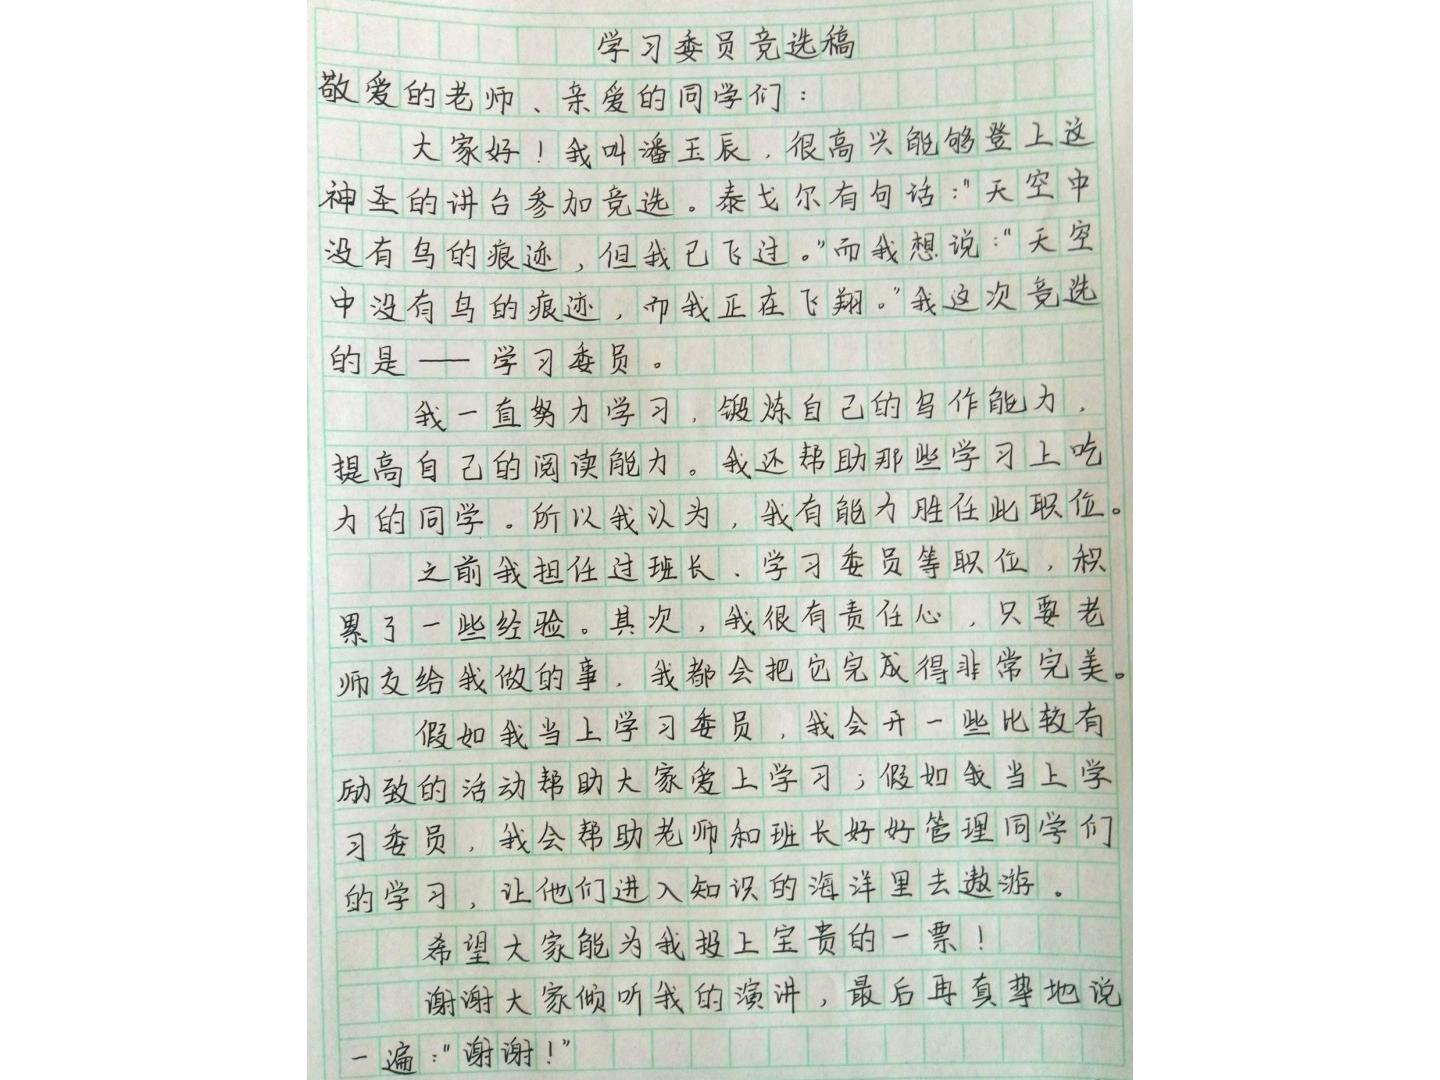 学习委员竞选稿
敬爱的老师、亲爱的同学们：
大家好！我叫潘玉辰，很高兴能够登上这
神圣的讲台参加竞选。泰戈尔有句话："天空中
没有鸟的痕迹，但我已飞过。"而我想说："天空
中没有鸟的痕迹，而我正在飞翔。"我这次竞选
的是——学习委员。
我一直努力学习，锻炼自己的写作能力，
提高自己的阅读能力。我还帮助那些学习上吃
力的同学。所以我认为，我有能力胜任此职位。
之前我担任过班长、学习委员等职位，积
累了一些经验。其次，我很有责任心，只要老
师交给我做的事，我都会把它完成得非常完美。
假如我当上学习委员，我会开一些比较有
励致的活动帮助大家爱上学习；假如我当上学
习委员，我会帮助老师和班长好好管理同学们
的学习，让他们进入知识的海洋里去遨游。
希望大家能为我投上宝贵的一票！
谢谢大家倾听我的演讲，最后再真挚地说
一遍："谢谢！"